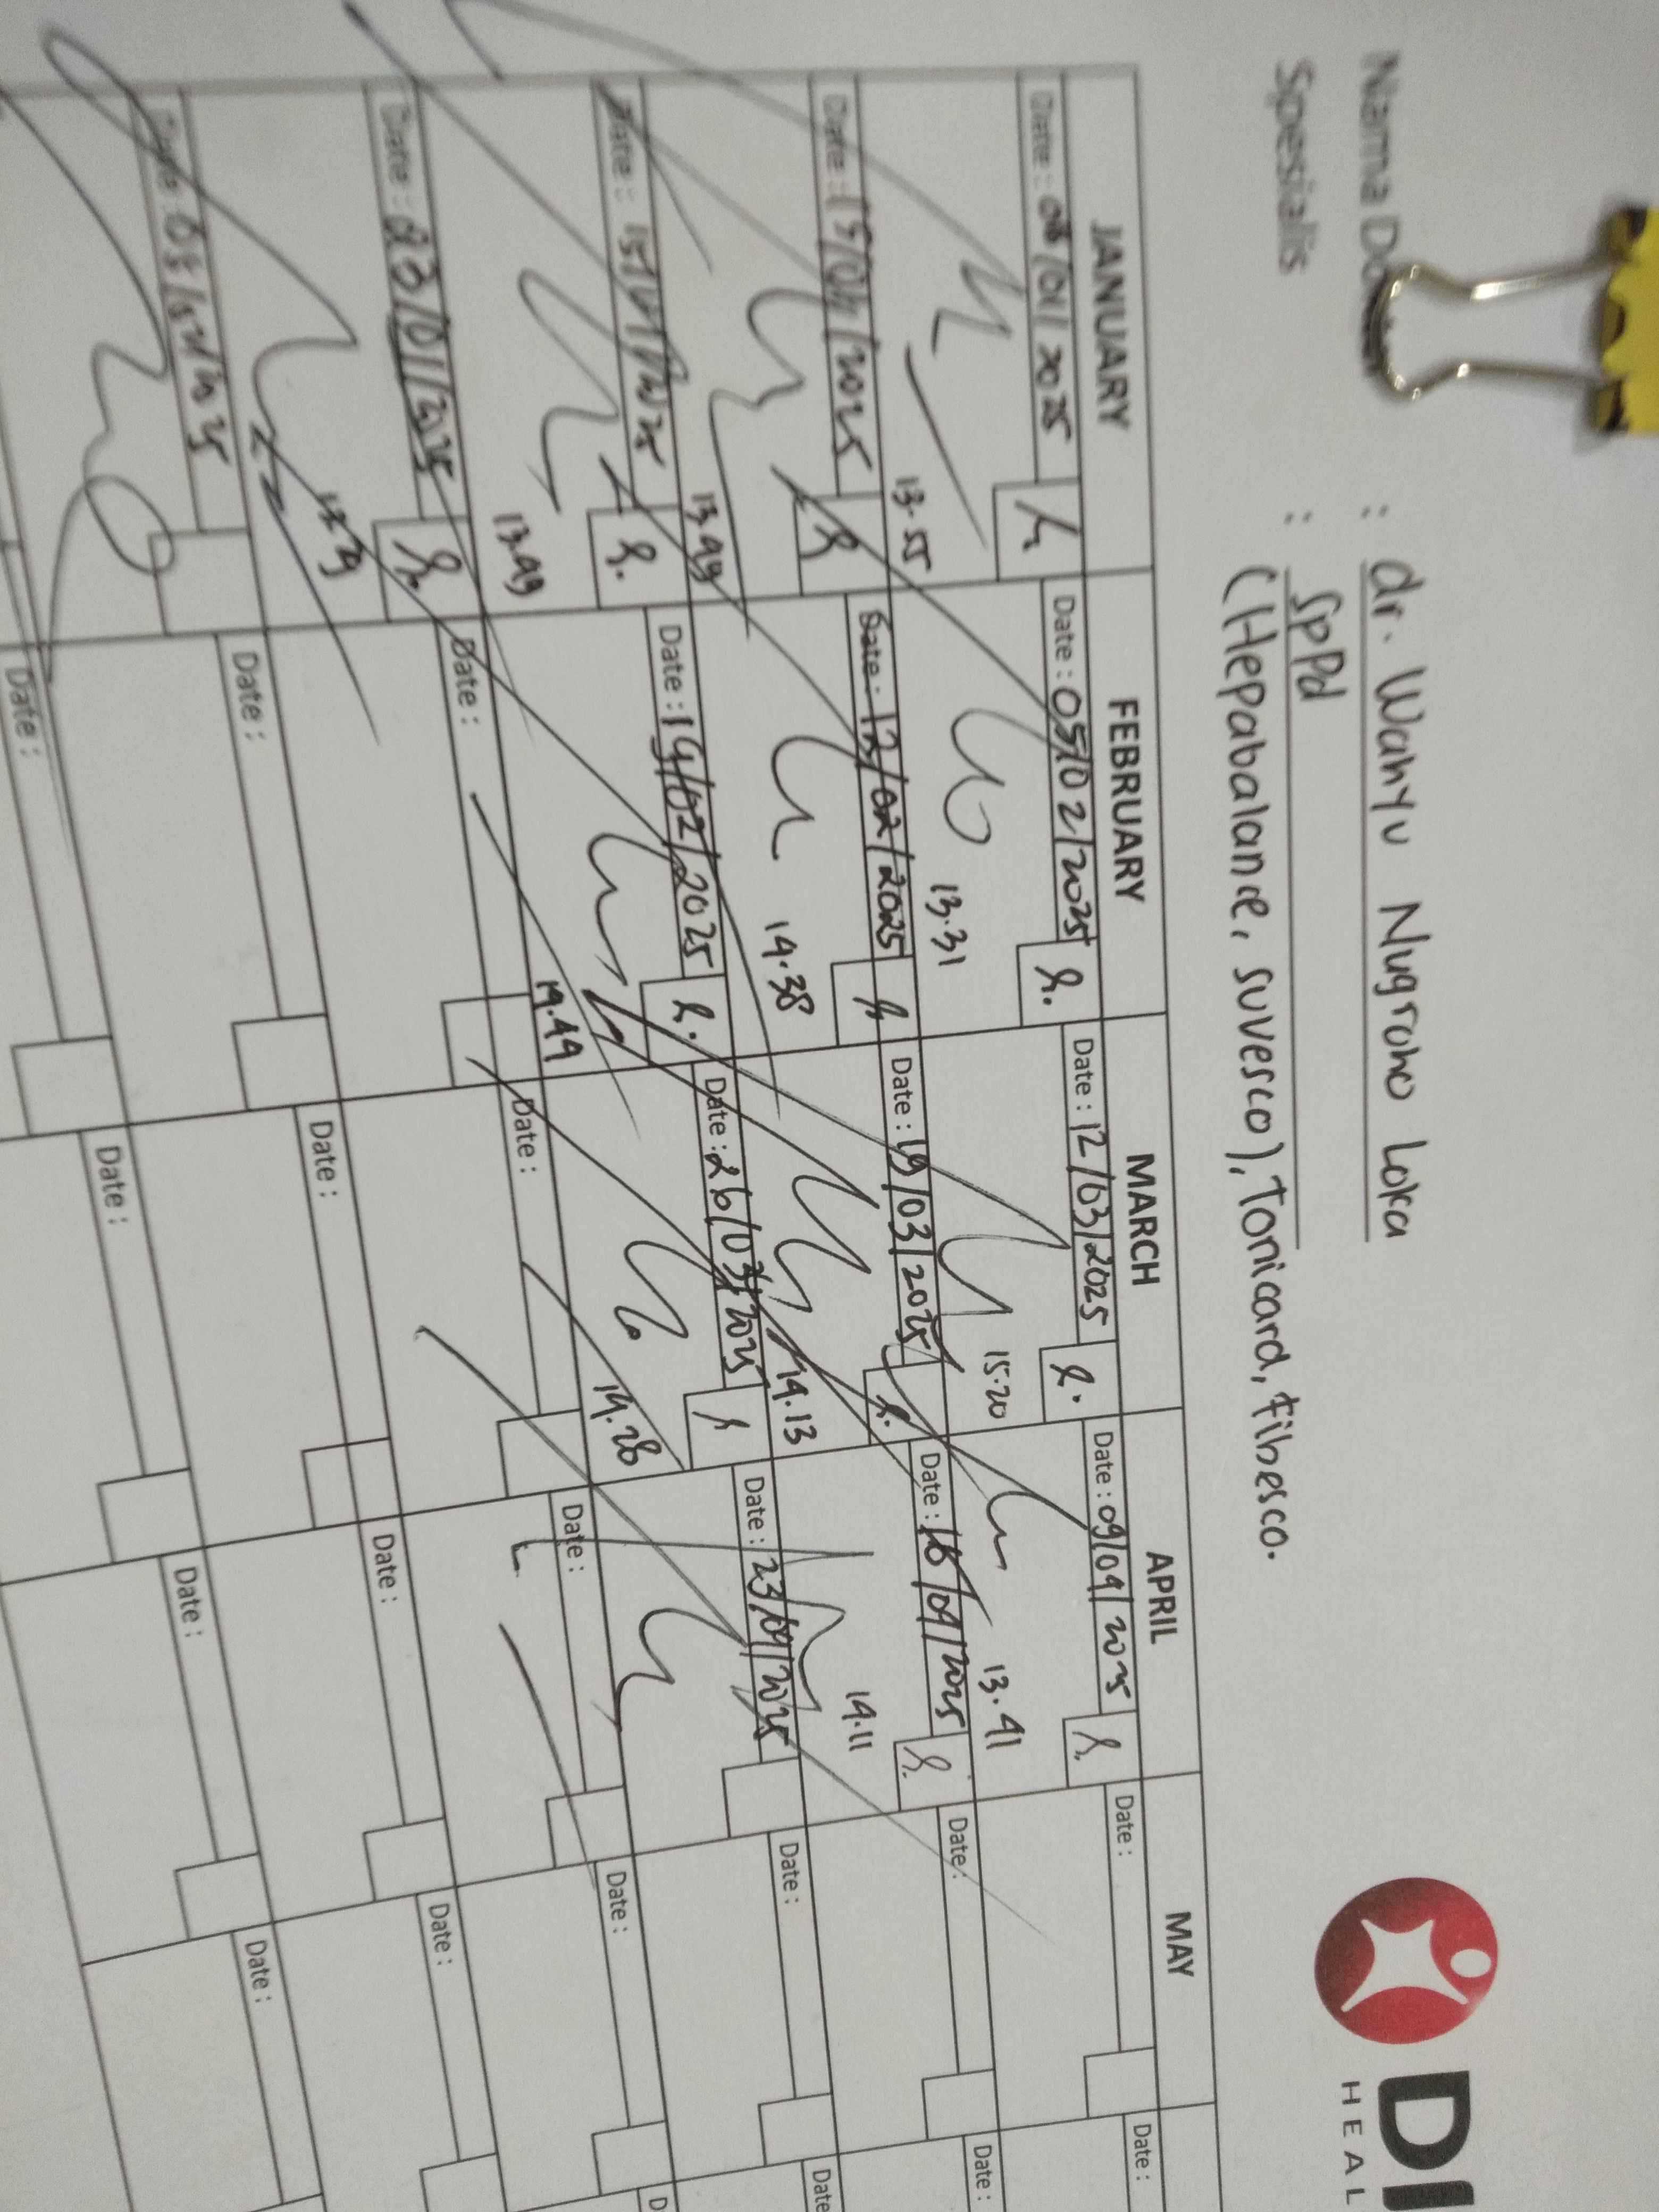 Nama Dokter : dr. Wahyu Nugroho Loka
Spesialis : SpPd
(Hepabalance, suvesco), Tonicard, Fibesco.
DI
HEAL
JANUARY FEBRUARY MARCH APRIL MAY
Date : 08/01/2025 Date : 05/02/2025 Date : 12/03/2025 Date : 09/04/2025 Date : Date :
13.55 13.31 15.20 13.41
Date : 15/01/2025 Date : 12/02/2025 Date : 19/03/2025 Date : 16/04/2025 Date : Date :
13.49 14.38 14.13 14.11
Date : 15/01/2025 Date : 19/02/2025 Date : 26/03/2025 Date : 23/04/2025 Date : Date
13.49 14.49 14.28
Date : 23/01/2025 Date : Date : Date : Date : D
Date : Date : Date : Date : Date :
Date : Date : Date : Date :